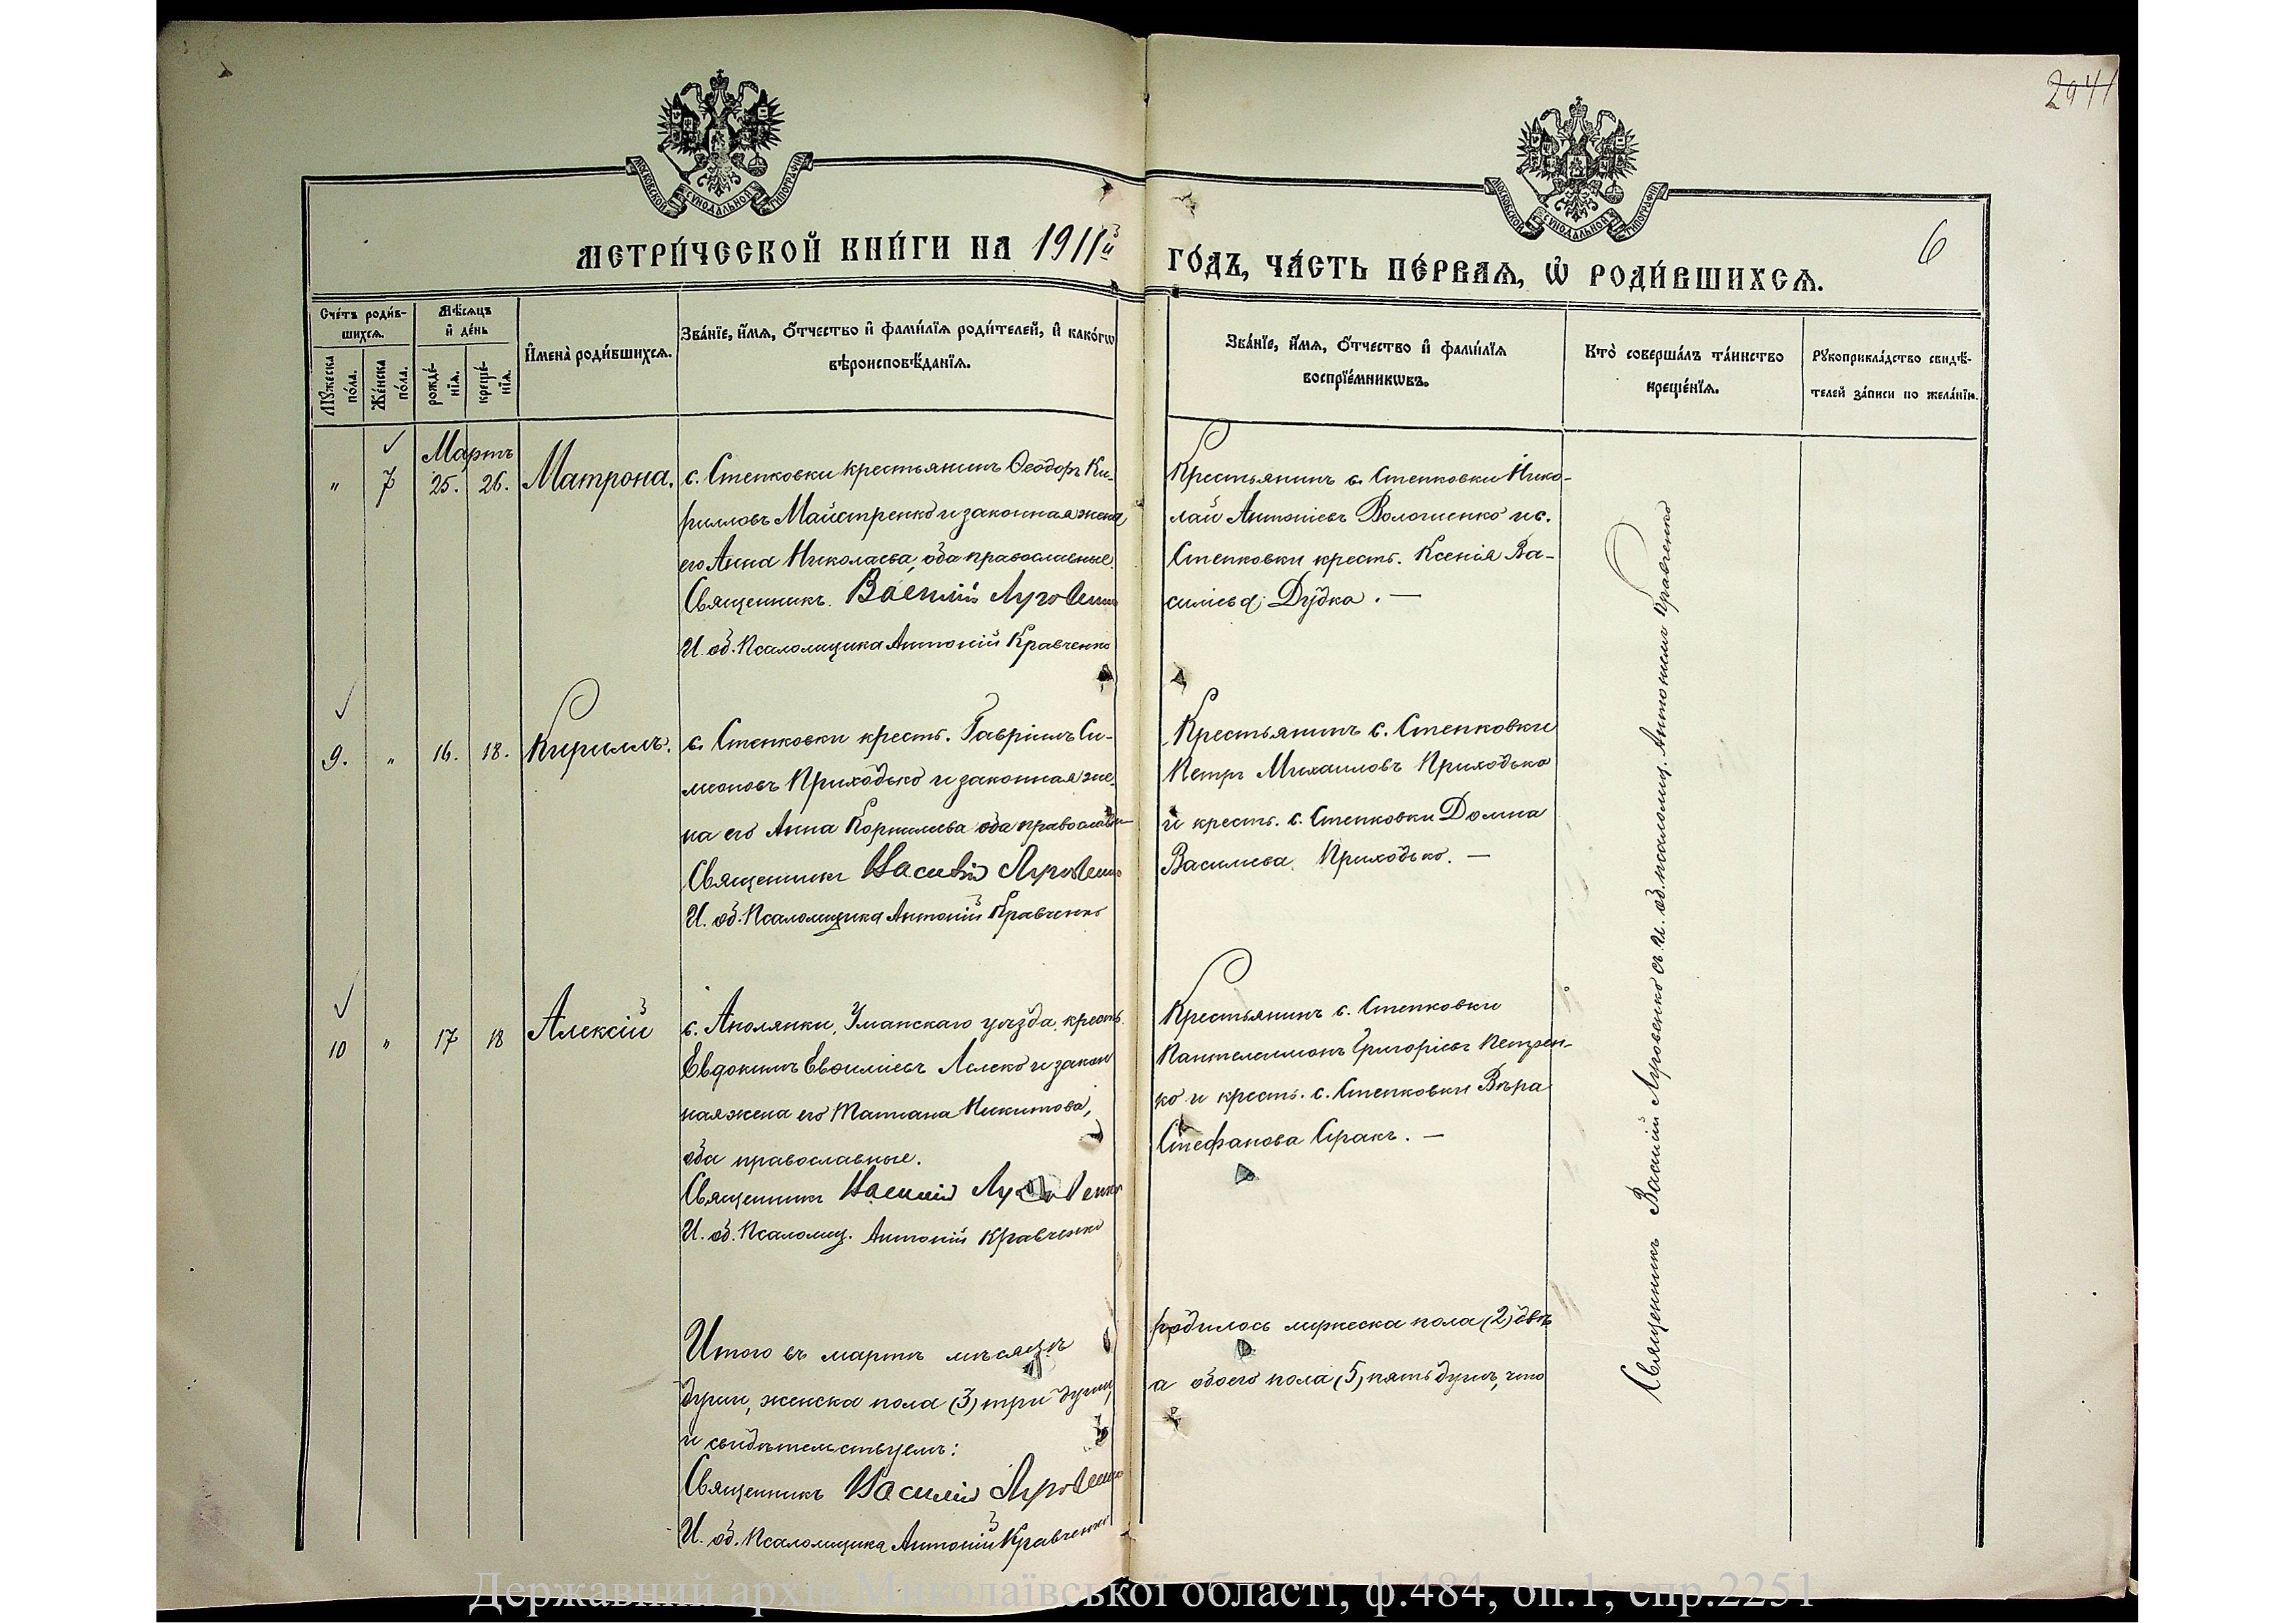 2941
МОСКОВСКОЙ СѴНОДАЛЬНОЙ ТИПОГРАФІИ
МОСКОВСКОЙ СѴНОДАЛЬНОЙ ТИПОГРАФІИ
МЕТРИ́ЧЕСКОЙ КНИ́ГИ НА 1911й
ГО́ДЪ, ЧА́СТЬ ПЕ́РВАѦ, Ѿ РОДИ́ВШИХСѦ.
6
Сче́тъ роди́в-
шихсѧ.
Мꙋ́жеска по́ла.
Же́нска по́ла.
Мѣ́сѧцъ
и҆ де́нь
рожде́-
нїѧ.
креще́-
нїѧ.
И҆мена̀ роди́вшихсѧ.
Зва́нїе, и҆́мѧ, ѻ҆́тчество и҆ фами́лїѧ роди́телей, и҆ како́гѡ
вѣроисповѣ́данїѧ.
Зва́нїе, и҆́мѧ, ѻ҆́тчество и҆ фами́лїѧ
воспрїе́мникѡвъ.
Кто̀ соверша́лъ та́инство
креще́нїѧ.
Рꙋкоприкла́дство свидѣ́-
телей за́писи по жела́нїю.
Мартъ
" 7 25. 26. Матрона.
с. Степковки крестьянинъ Ѳеодоръ Ки-
рилловъ Майстренко и законная жена
его Анна Николаева, оба православные.
Священникъ Василій Луговенко
И. об. Псаломщика Антоній Кравченко
Крестьянинъ с. Степковки Нико-
лай Антоніевъ Волошенко и с.
Степковки крест. Ксенія Ва-
силіева Дудка. —
9. " 16. 18. Кириллъ.
с. Степковки крест. Гавріилъ Си-
меоновъ Приходько и законная же-
на его Анна Корнилиева оба православн
Священникъ Василій Луговенко
И. об. Псаломщика Антоній Кравченко
Крестьянинъ с. Степковки
Петръ Михаиловъ Приходько
и крест. с. Степковки Домна
Василиева Приходько. —
10 " 17 18 Алексій
с. Аполянки, Уманскаго уѣзда, крест.
Евдокимъ Евѳиміевъ Лелеко и закон
ная жена его Татіана Никитова,
оба православные.
Священникъ Василій Луговенко
И. об. Псаломщ. Антоній Кравченко
Крестьянинъ с. Степковки
Пантелеимонъ Григоріевъ Петрен-
ко и крест. с. Степковки Вѣра
Стефанова Сракъ. —
Священникъ Василій Луговенко съ И. об. псаломщ. Антоніемъ Кравченко
Итого въ мартѣ мѣсяцѣ
родилось мужеска пола (2) двѣ
души, женска пола (3) три души,
а обоего пола (5) пять душъ, что
и свидѣтельствуемъ:
Священникъ Василій Луговенко
И. об. Псаломщика Антоній Кравченко
Державний архів Миколаївської області, ф.484, оп.1, спр.2251